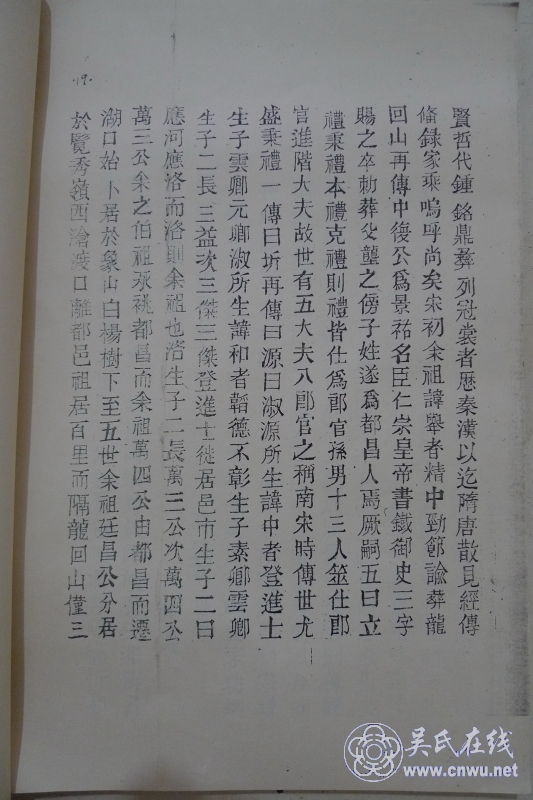 賢哲代鍾銘鼎彝列冠裳者歷秦漢以迄隋唐散見經傳
俻録家乘嗚呼尚矣宋初余祖諱舉者精中勁節諭葬龍
回山再傳中後公爲景祐名臣仁崇皇帝書鐵御史三字
賜之卒勅葬父壟之傍子姓遂爲都昌人焉厥嗣五曰立
禮秉禮本禮克禮則禮皆仕爲郎官孫男十三人筮仕郎
官進階大夫故世有五大夫八郎官之稱南宋時傳世尤
盛秉禮一傳曰圻再傳曰源曰淑源所生諱中者登進士
生子雲卿元卿淑所生諱和者韜德不彰生子素卿雲卿
生子二長三益次三傑三傑登進士徙居邑市生子二曰
應河應洛而洛則余祖也洛生子二長萬三公次萬四公
萬三公余之伯祖承祧都昌而余祖萬四公由都昌而遷
湖口始卜居於象山白楊樹下至五世余祖廷昌公分居
於覽秀嶺西滄渡口離都邑祖居百里而隔龍回山僅三
19.
吴氏在线
www.cnwu.net